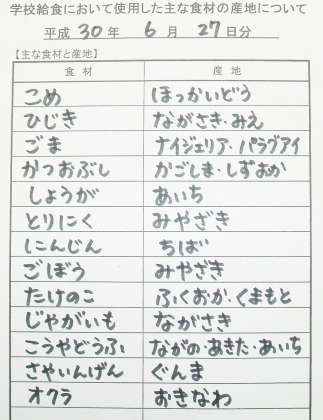 学校給食において使用した主な食材の産地について
平成 30 年 6 月 27 日分
【主な食材と産地】
食 材 産 地
こめ ほっかいどう
ひじき ながさき・みえ
ごま ナイジェリア・パラグアイ
かつおぶし かごしま・しずおか
しょうが あいち
とりにく みやざき
にんじん ちば
ごぼう みやざき
たけのこ ふくおか・くまもと
じゃがいも ながさき
こうやどうふ ながの・あきた・あいち
さやいんげん ぐんま
オクラ おきなわ